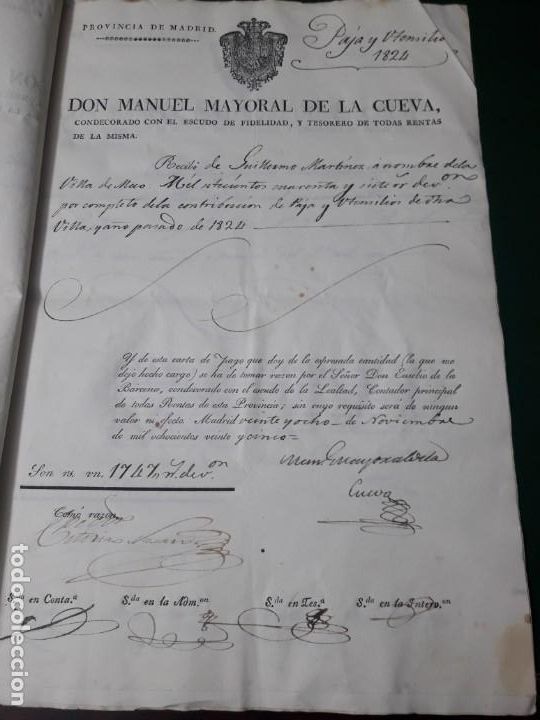 PROVINCIA DE MADRID.
Paja y Utensilios
1824
DON MANUEL MAYORAL DE LA CUEVA,
CONDECORADO CON EL ESCUDO DE FIDELIDAD, Y TESORERO DE TODAS RENTAS
DE LA MISMA.
Recibí de Guillermo Martinez, a nombre dela
Villa de Meco Mil setecientos quarenta y siete rs. de v.on
por completo dela contribucion de Paja y Utensilios de dha
Villa, y año pasado de 1824
Y de esta carta de pago que doy de la espresada cantidad (la que me
dejo hecho cargo) se ha de tomar razon por el Señor Don Eusebio de la
Barcena, condecorado con el escudo de la Lealtad, Contador principal
de todas Rentas de esta Provincia; sin cuyo requisito será de ningun
valor ni efecto Madrid veinte y ocho de Noviembre
de mil ochocientos veinte y cinco
Son rs. vn. 1747, rs. de v.on
Man.l Mayoral de la
Cueva
Tomé razon.
S.da en Conta.a S.da en la Adm.on S.da en Tes.a S.da en la Interv.on
todocoleccion